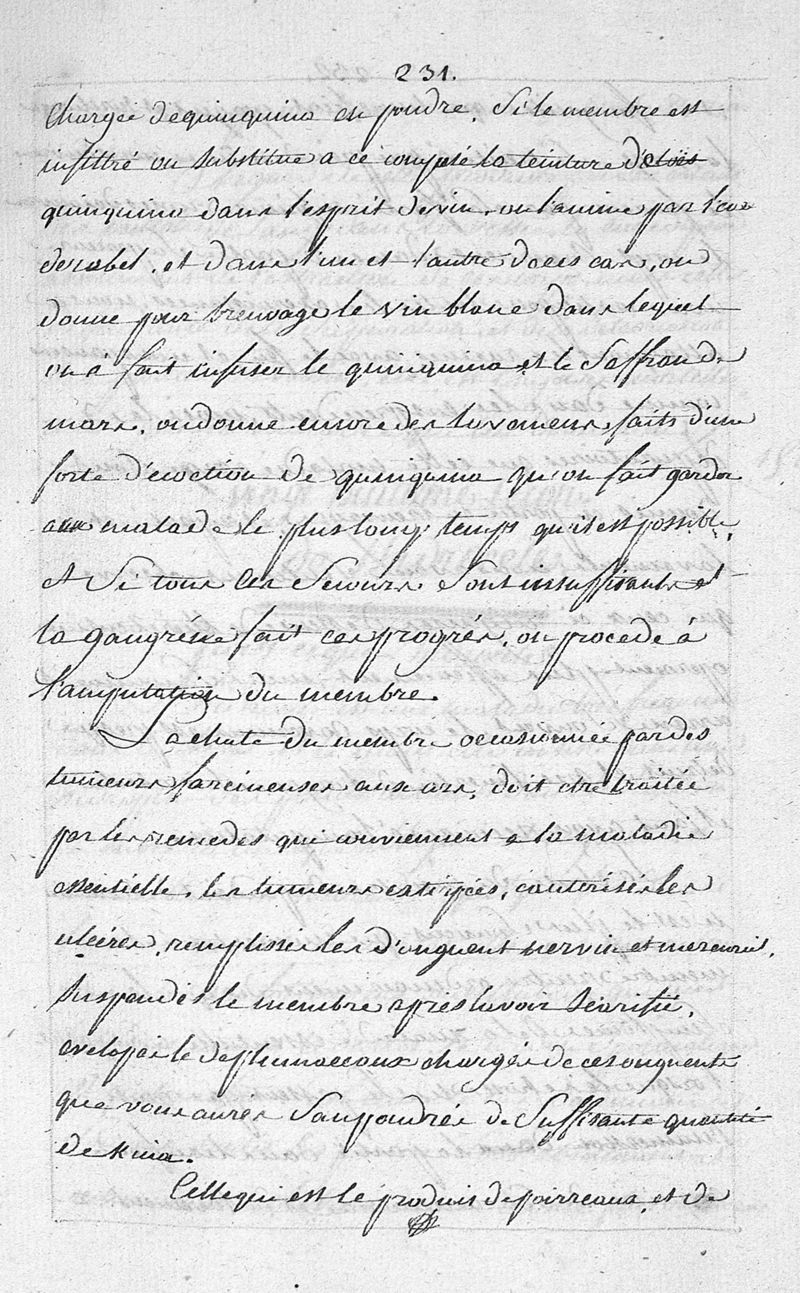 231.
chargée de quinquina en poudre. Si le membre est
infiltré on substitue a ce composé la teinture d'aloës
quinquina dans l'esprit de vin, on l'anime par l'eau
de rabel, et dans l'un et l'autre de ces cas, on
donne pour breuvage le vin blanc dans lequel
on a fait infuser le quinquina et le Saffran de
mars, on donne encore des lavemens faits d'une
forte d'écoction de quinquina qu'on fait garder
au malade le plus long temps qu'il est possible,
et Si tous ces Secours Sont insuffisants et
la gangréne fait ces progrés, on procede à
l'amputation du membre.
La chute du membre occasionnée par des
tumeurs farcineuses aux ars, doit etre traitée
par les remedes qui conviennent a la maladie
essentielle, les tumeurs extirpées, cauterisés les
ulcéres, remplissés les d'onguent nervin et mercuriel,
Suspendés le membre apres lavoir Scarifié,
evelopés le de plumaceaux chargés de ces onguents
que vous aurés Saupoudrés de Suffisante quantité
de kina.
Celle qui est le produit de poirreaux, et de